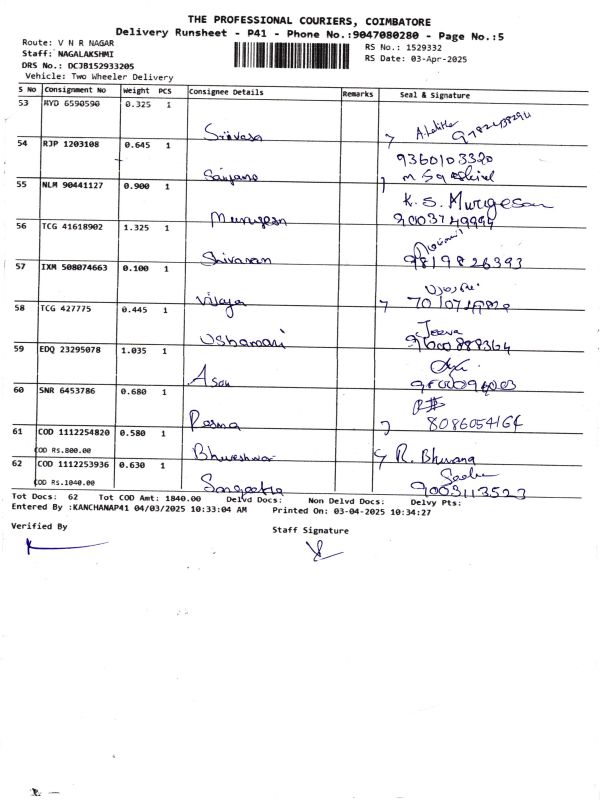 THE PROFESSIONAL COURIERS, COIMBATORE
Delivery Runsheet - P41 - Phone No.:9047080280 - Page No.:5
Route: V N R NAGAR
Staff: NAGALAKSHMI
DRS No.: DCJB152933205
Vehicle: Two Wheeler Delivery
RS No.: 1529332
RS Date: 03-Apr-2025
S No Consignment No Weight PCS Consignee Details Remarks Seal & Signature
53 MYD 6590590 0.325 1
54 RJP 1203108 0.645 1
9360103320
55 NLM 90441127 0.900 1
K. S. Murugesan
Murugesan
56 TCG 41618902 1.325 1
Shivaran
9819826393
57 IXM 508074663 0.100 1
Vijaya
58 TCG 427775 0.445 1
Jeeva
Usharani
59 EDQ 23295078 1.035 1
60 SNR 6453786 0.680 1
8086054164
61 COD 1112254820 0.580 1
COD RS.800.00
Bhuveshwar
R. Bhuvana
62 COD 1112253936 0.630 1
COD RS.1040.00
Sangeetha
9003113523
Tot Docs: 62 Tot COD Amt: 1840.00 Delvd Docs: Non Delvd Docs: Delvy Pts:
Entered By :KANCHANAP41 04/03/2025 10:33:04 AM Printed On: 03-04-2025 10:34:27
Verified By
Staff Signature